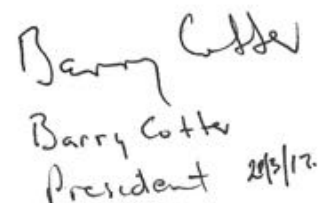 Barry Cotter
Barry Cotter
President